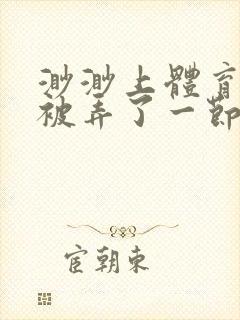 渺渺上體育
被弄了一節
宦朝東